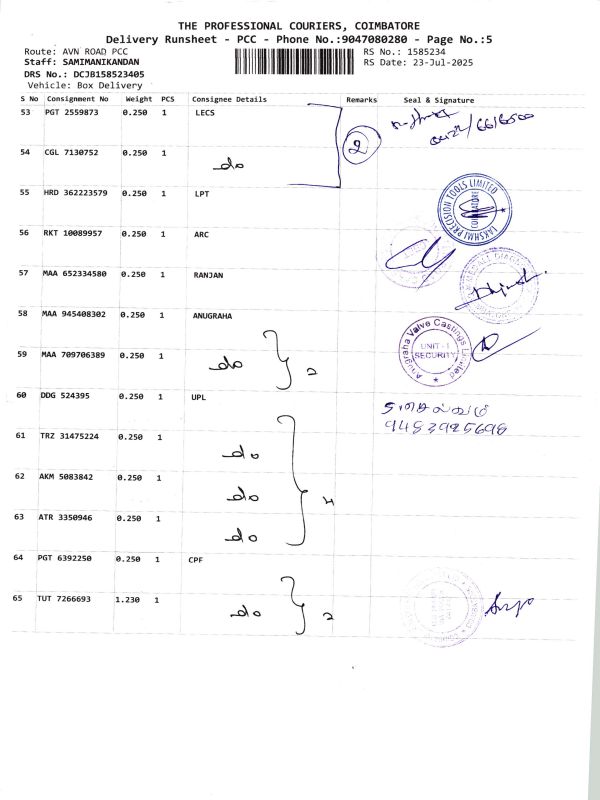 THE PROFESSIONAL COURIERS, COIMBATORE
Delivery Runsheet - PCC - Phone No.:9047080280 - Page No.:5
Route: AVN ROAD PCC
RS No.: 1585234
Staff: SAMIMANIKANDAN
RS Date: 23-Jul-2025
DRS No.: DCJB158523405
Vehicle: Box Delivery
S No Consignment No Weight PCS Consignee Details Remarks Seal & Signature
53 PGT 2559873 0.250 1 LECS
0422/6616500
54 CGL 7130752 0.250 1 do 2
55 HRD 362223579 0.250 1 LPT
LAKSHMI PRECISION TOOLS LIMITED
COIMBATORE
56 RKT 10089957 0.250 1 ARC
57 MAA 652334580 0.250 1 RANJAN
58 MAA 945408302 0.250 1 ANUGRAHA
Anugraha Valve Castings Limited
UNIT - 1
SECURITY
59 MAA 709706389 0.250 1 do 2
60 DDG 524395 0.250 1 UPL
9483985698
61 TRZ 31475224 0.250 1 do
62 AKM 5083842 0.250 1 do 4
63 ATR 3350946 0.250 1 do
64 PGT 6392250 0.250 1 CPF
65 TUT 7266693 1.230 1 do 2